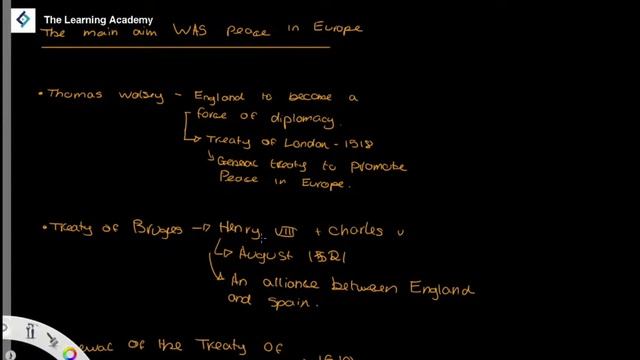 The Learning Academy
The main aim WAS peace in Europe
• Thomas Wolsey - England to become a
force of diplomacy.
Treaty of London - 1518
General treaty to promote
Peace in Europe.
• Treaty of Bruges → Henry VIII + Charles V
August 1521
An alliance between England
and Spain.
of the Treaty of